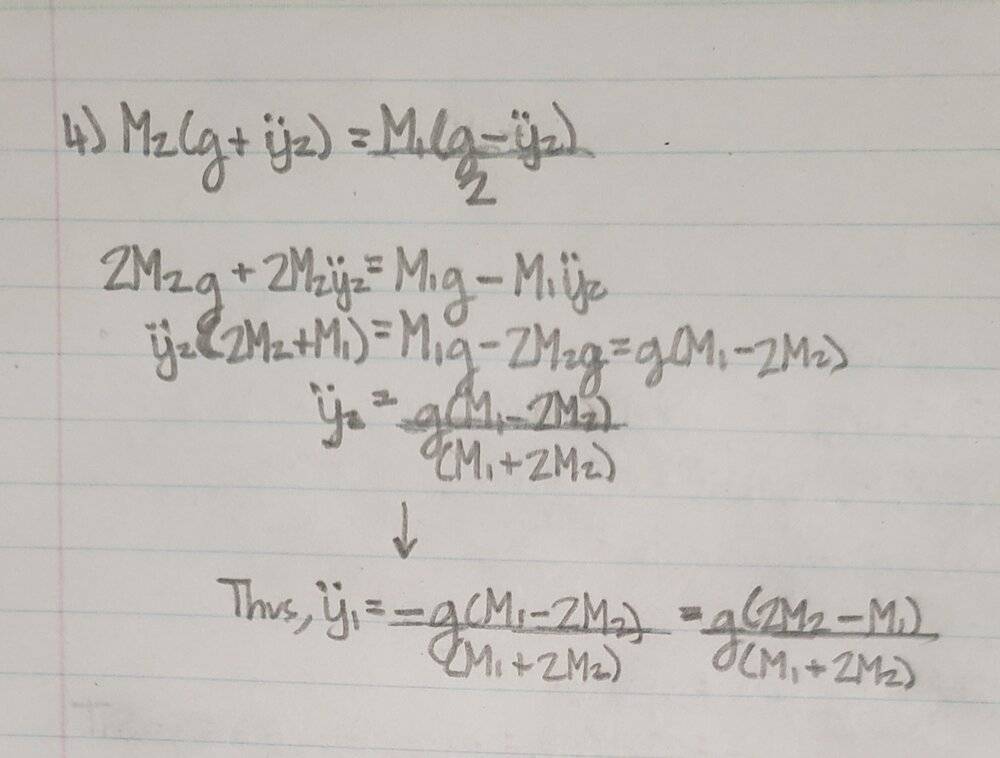 4) M₂(g + ÿ₂) = M₁(g − ÿ₂)/2
2M₂g + 2M₂ÿ₂ = M₁g − M₁ÿ₂
ÿ₂(2M₂+M₁) = M₁g − 2M₂g = g(M₁ − 2M₂)
ÿ₂ = g(M₁ − 2M₂)/(M₁ + 2M₂)
↓
Thus, ÿ₁ = −g(M₁ − 2M₂)/(M₁ + 2M₂) = g(2M₂ − M₁)/(M₁ + 2M₂)